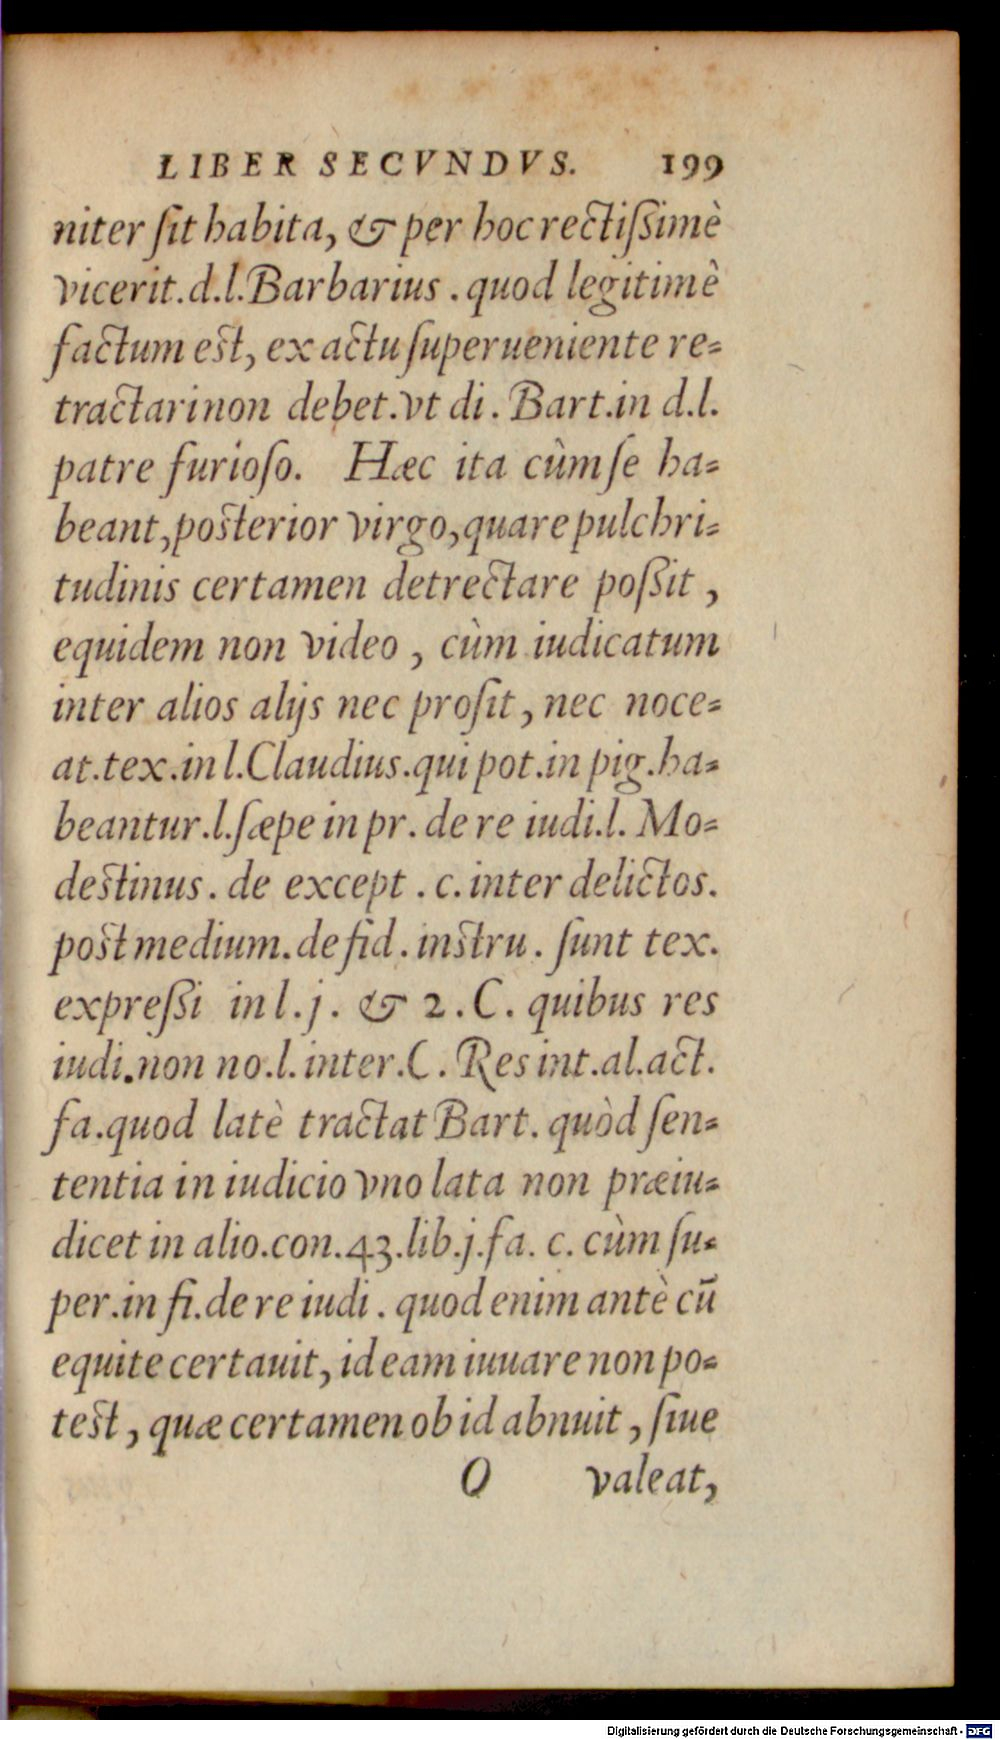 LIBER SECVNDVS. 199
niter ſit habita, & per hoc rectiſsimè
vicerit.d.l.Barbarius . quod legitimè
factum est, ex actu ſuperueniente re-
tractari non debet.vt di. Bart.in d.l.
patre furioſo. Hæc ita cùm ſe ha-
beant, posterior virgo, quare pulchri-
tudinis certamen detrectare poſsit ,
equidem non video , cùm iudicatum
inter alios alijs nec proſit, nec noce-
at.tex.in l.Claudius.qui pot.in pig.ha-
beantur.l.ſæpe in pr. de re iudi.l. Mo-
destinus. de except . c. inter delictos.
post medium.de fid. instru. ſunt tex.
expreſsi in l. j. & 2. C. quibus res
iudi.non no.l. inter.C. Res int.al.act.
fa.quod latè tractat Bart. quòd ſen-
tentia in iudicio vno lata non præiu-
dicet in alio.con.43.lib.j.fa. c. cùm ſu-
per.in fi.de re iudi. quod enim antè cū
equite certauit, id eam iuuare non po-
test, quæ certamen ob id abnuit, ſiue
O valeat,
Digitalisierung gefördert durch die Deutsche Forschungsgemeinschaft - DFG